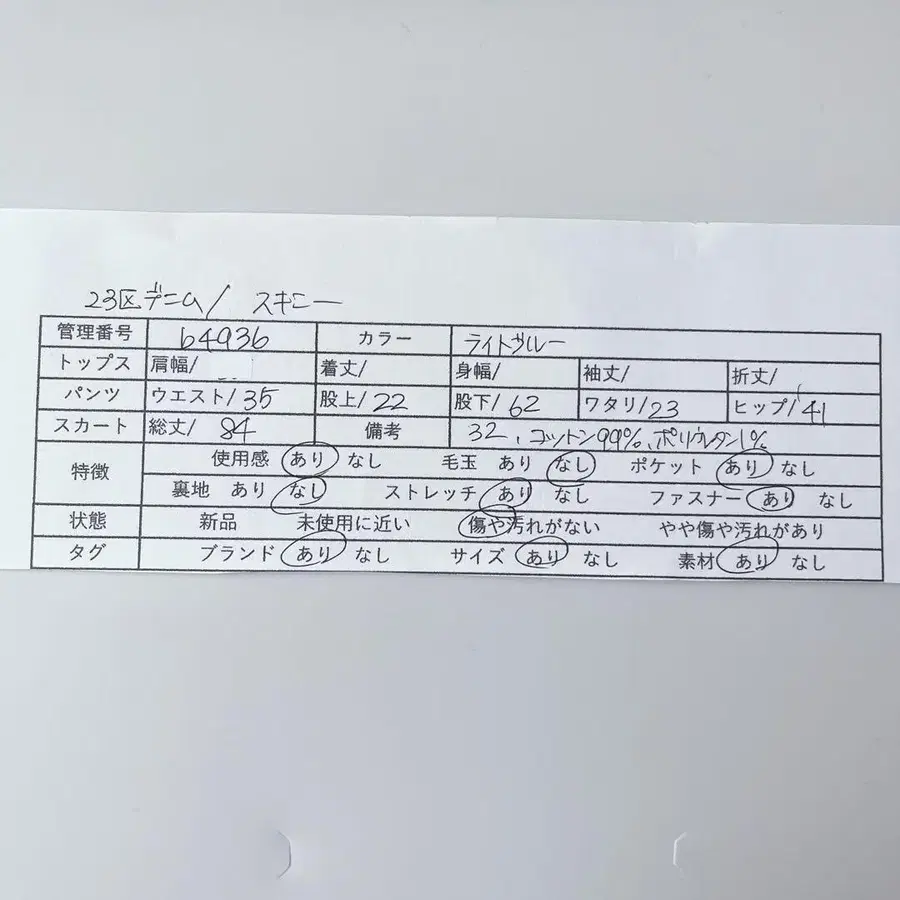 23区デニム/ スキニー
管理番号 b4936 カラー ライトブルー
トップス 肩幅/ 着丈/ 身幅/ 袖丈/ 折丈/
パンツ ウエスト/35 股上/22 股下/62 ワタリ/23 ヒップ/41
スカート 総丈/ 84 備考 32、コットン99%、ポリウレタン1%
特徴 使用感 あり なし 毛玉 あり なし ポケット あり なし
裏地 あり なし ストレッチ あり なし ファスナー あり なし
状態 新品 未使用に近い 傷や汚れがない やや傷や汚れがあり
タグ ブランド あり なし サイズ あり なし 素材 あり なし